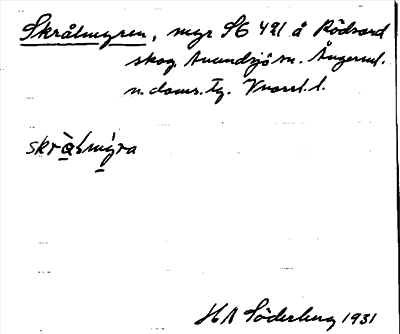 Skrålmyren, myr SO 421 å Rödvard
skog. Anundsjö sn. Ångerml.
n. doms. tg. Vnorrl. l.
skrålmyra
HA Söderberg 1931